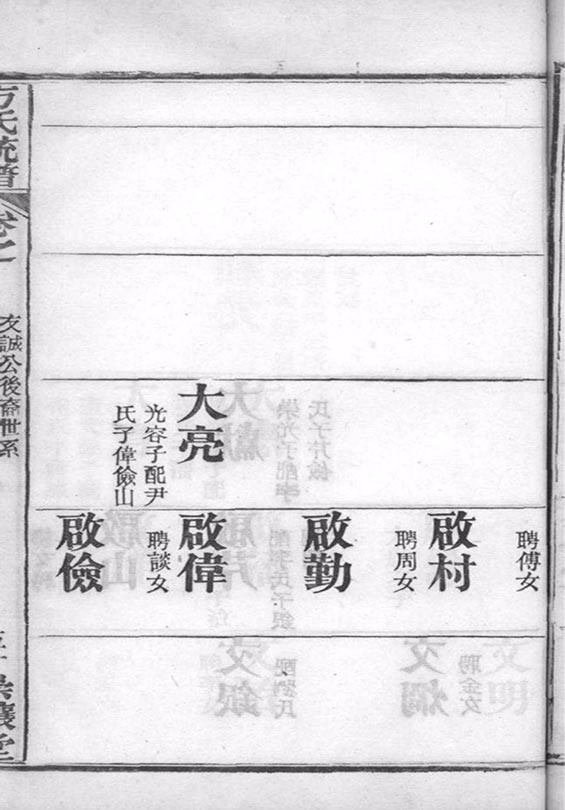 大亮
光容子配尹
氏子偉儉山
聘傅女
啟村
聘周女
啟勤
聘談女
啟偉
啟儉
方氏統譜
卷之
友誠公後裔世系